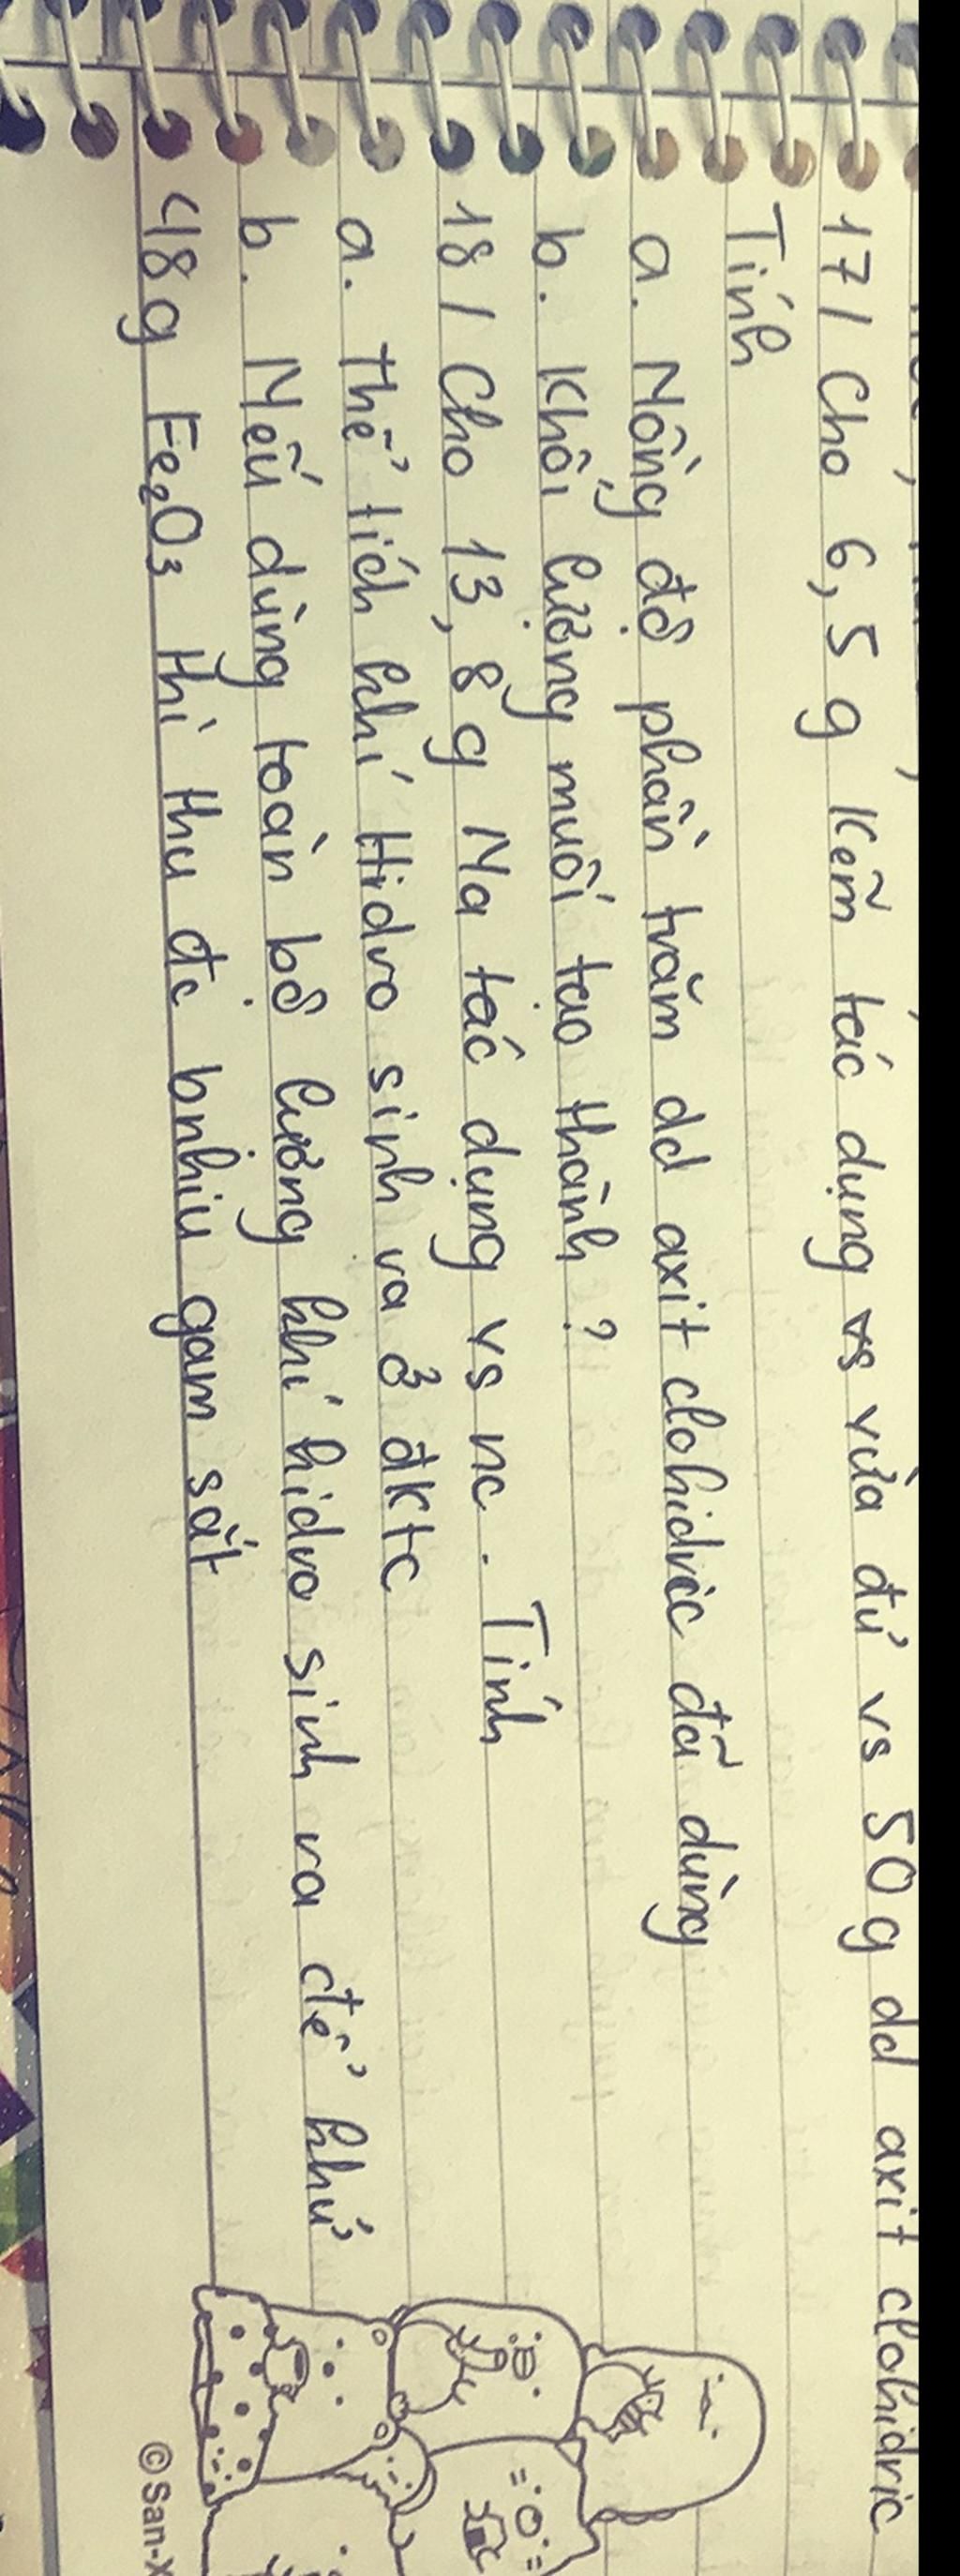 17/ Cho 6,5 g kẽm tác dụng vs vừa đủ vs 50g dd axit clohidric
Tính
a. Nồng độ phần trăm dd axit clohidric đã dùng
b. Khối lượng muối tạo thành?
18/ Cho 13,8g Na tác dụng vs nc. Tính
a. Thể tích khí Hidro sinh ra ở đktc
b. Nếu dùng toàn bộ lượng khí hidro sinh ra để khử
48g Fe₂O₃ thì thu đc bnhiu gam sắt
© San-X